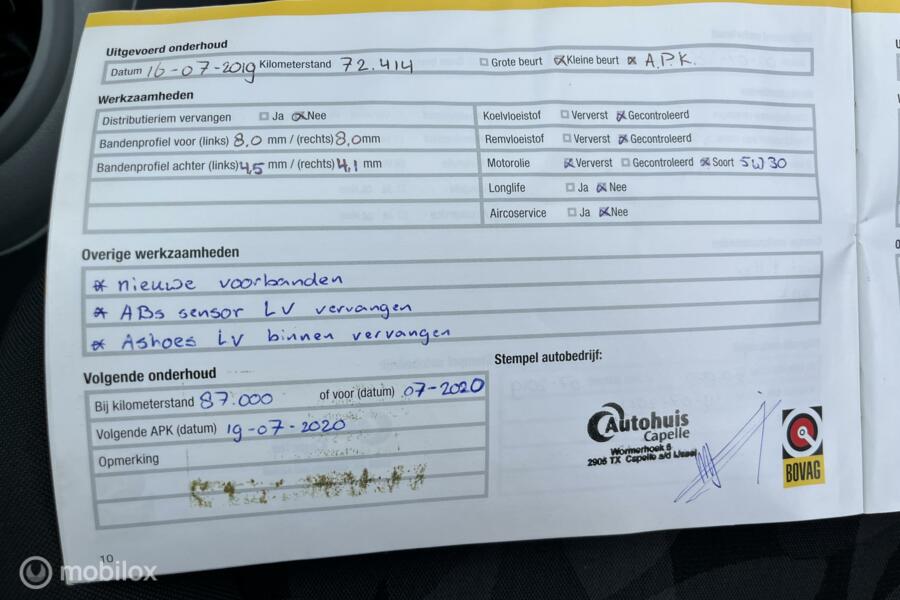 Uitgevoerd onderhoud
Datum 16-07-2019 Kilometerstand 72.414 Grote beurt Kleine beurt A.P.K.
Werkzaamheden
Distributieriem vervangen Ja Nee
Koelvloeistof Ververst Gecontroleerd
Bandenprofiel voor (links) 8,0 mm / (rechts) 8,0 mm
Remvloeistof Ververst Gecontroleerd
Bandenprofiel achter (links) 4,5 mm / (rechts) 4,1 mm
Motorolie Ververst Gecontroleerd Soort 5W30
Longlife Ja Nee
Aircoservice Ja Nee
Overige werkzaamheden
* nieuwe voorbanden
* ABS sensor LV vervangen
* Ashoes LV binnen vervangen
Volgende onderhoud
Stempel autobedrijf:
Bij kilometerstand 87.000 of voor (datum) 07-2020
Volgende APK (datum) 19-07-2020
Opmerking
Autohuis
Capelle
Wormerhoek 5
2905 TX Capelle a/d IJssel
BOVAG
10
mobilox